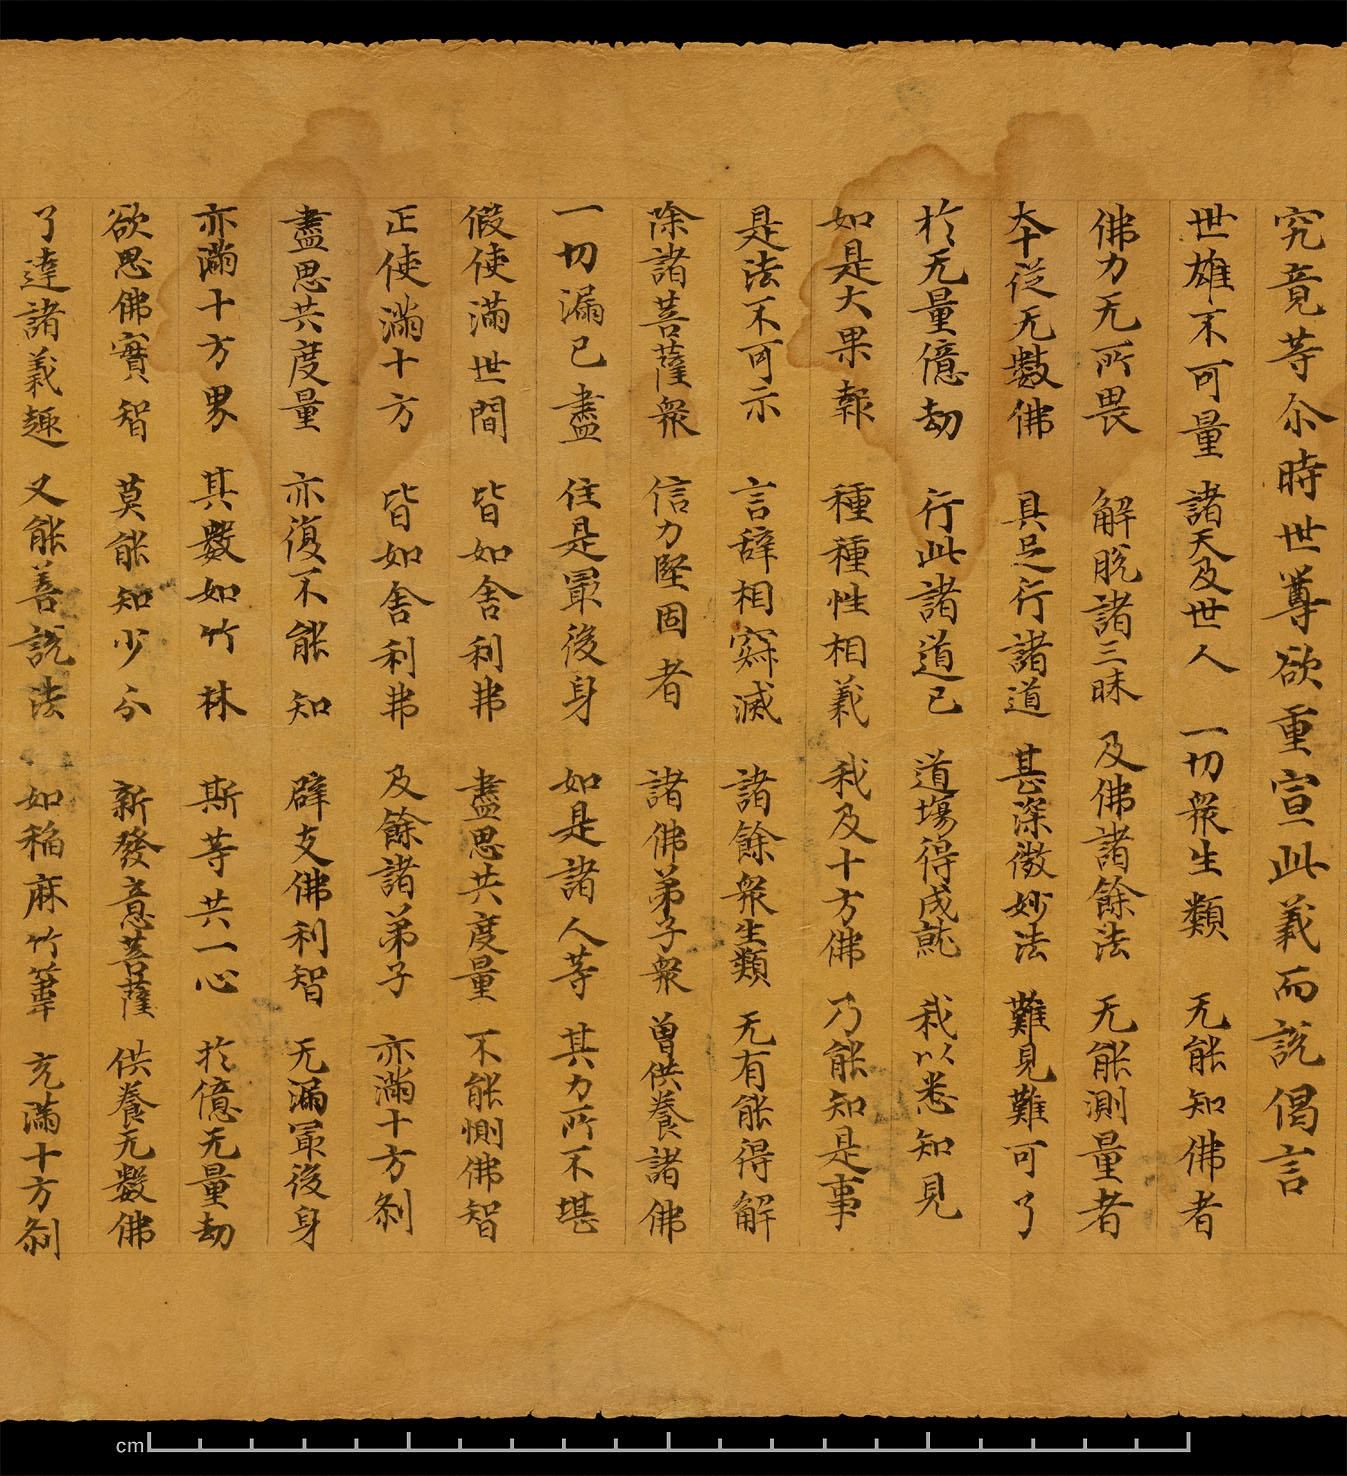 究竟等尒時世尊欲重宣此義而說偈言
世雄不可量 諸天及世人 一切衆生類 无能知佛者
佛力无所畏 解脫諸三昧 及佛諸餘法 无能測量者
夲從无數佛 具足行諸道 甚深微妙法 難見難可了
於无量億劫 行此諸道已 道場得成就 我以悉知見
如是大果報 種種性相義 我及十方佛 乃能知是事
是法不可示 言辝相寂滅 諸餘衆生類 无有能得解
除諸菩薩衆 信力堅固者 諸佛弟子衆 曾供養諸佛
一切漏已盡 住是冣後身 如是諸人等 其力所不堪
假使滿世間 皆如舍利弗 盡思共度量 不能惻佛智
正使滿十方 皆如舍利弗 及餘諸弟子 亦滿十方刹
盡思共度量 亦復不能知 辟支佛利智 无漏冣後身
亦滿十方界 其數如竹林 斯等共一心 於億无量劫
欲思佛實智 莫能知少分 新發意菩薩 供養无數佛
了達諸義趣 又能善說法 如稻麻竹葦 充滿十方刹
cm